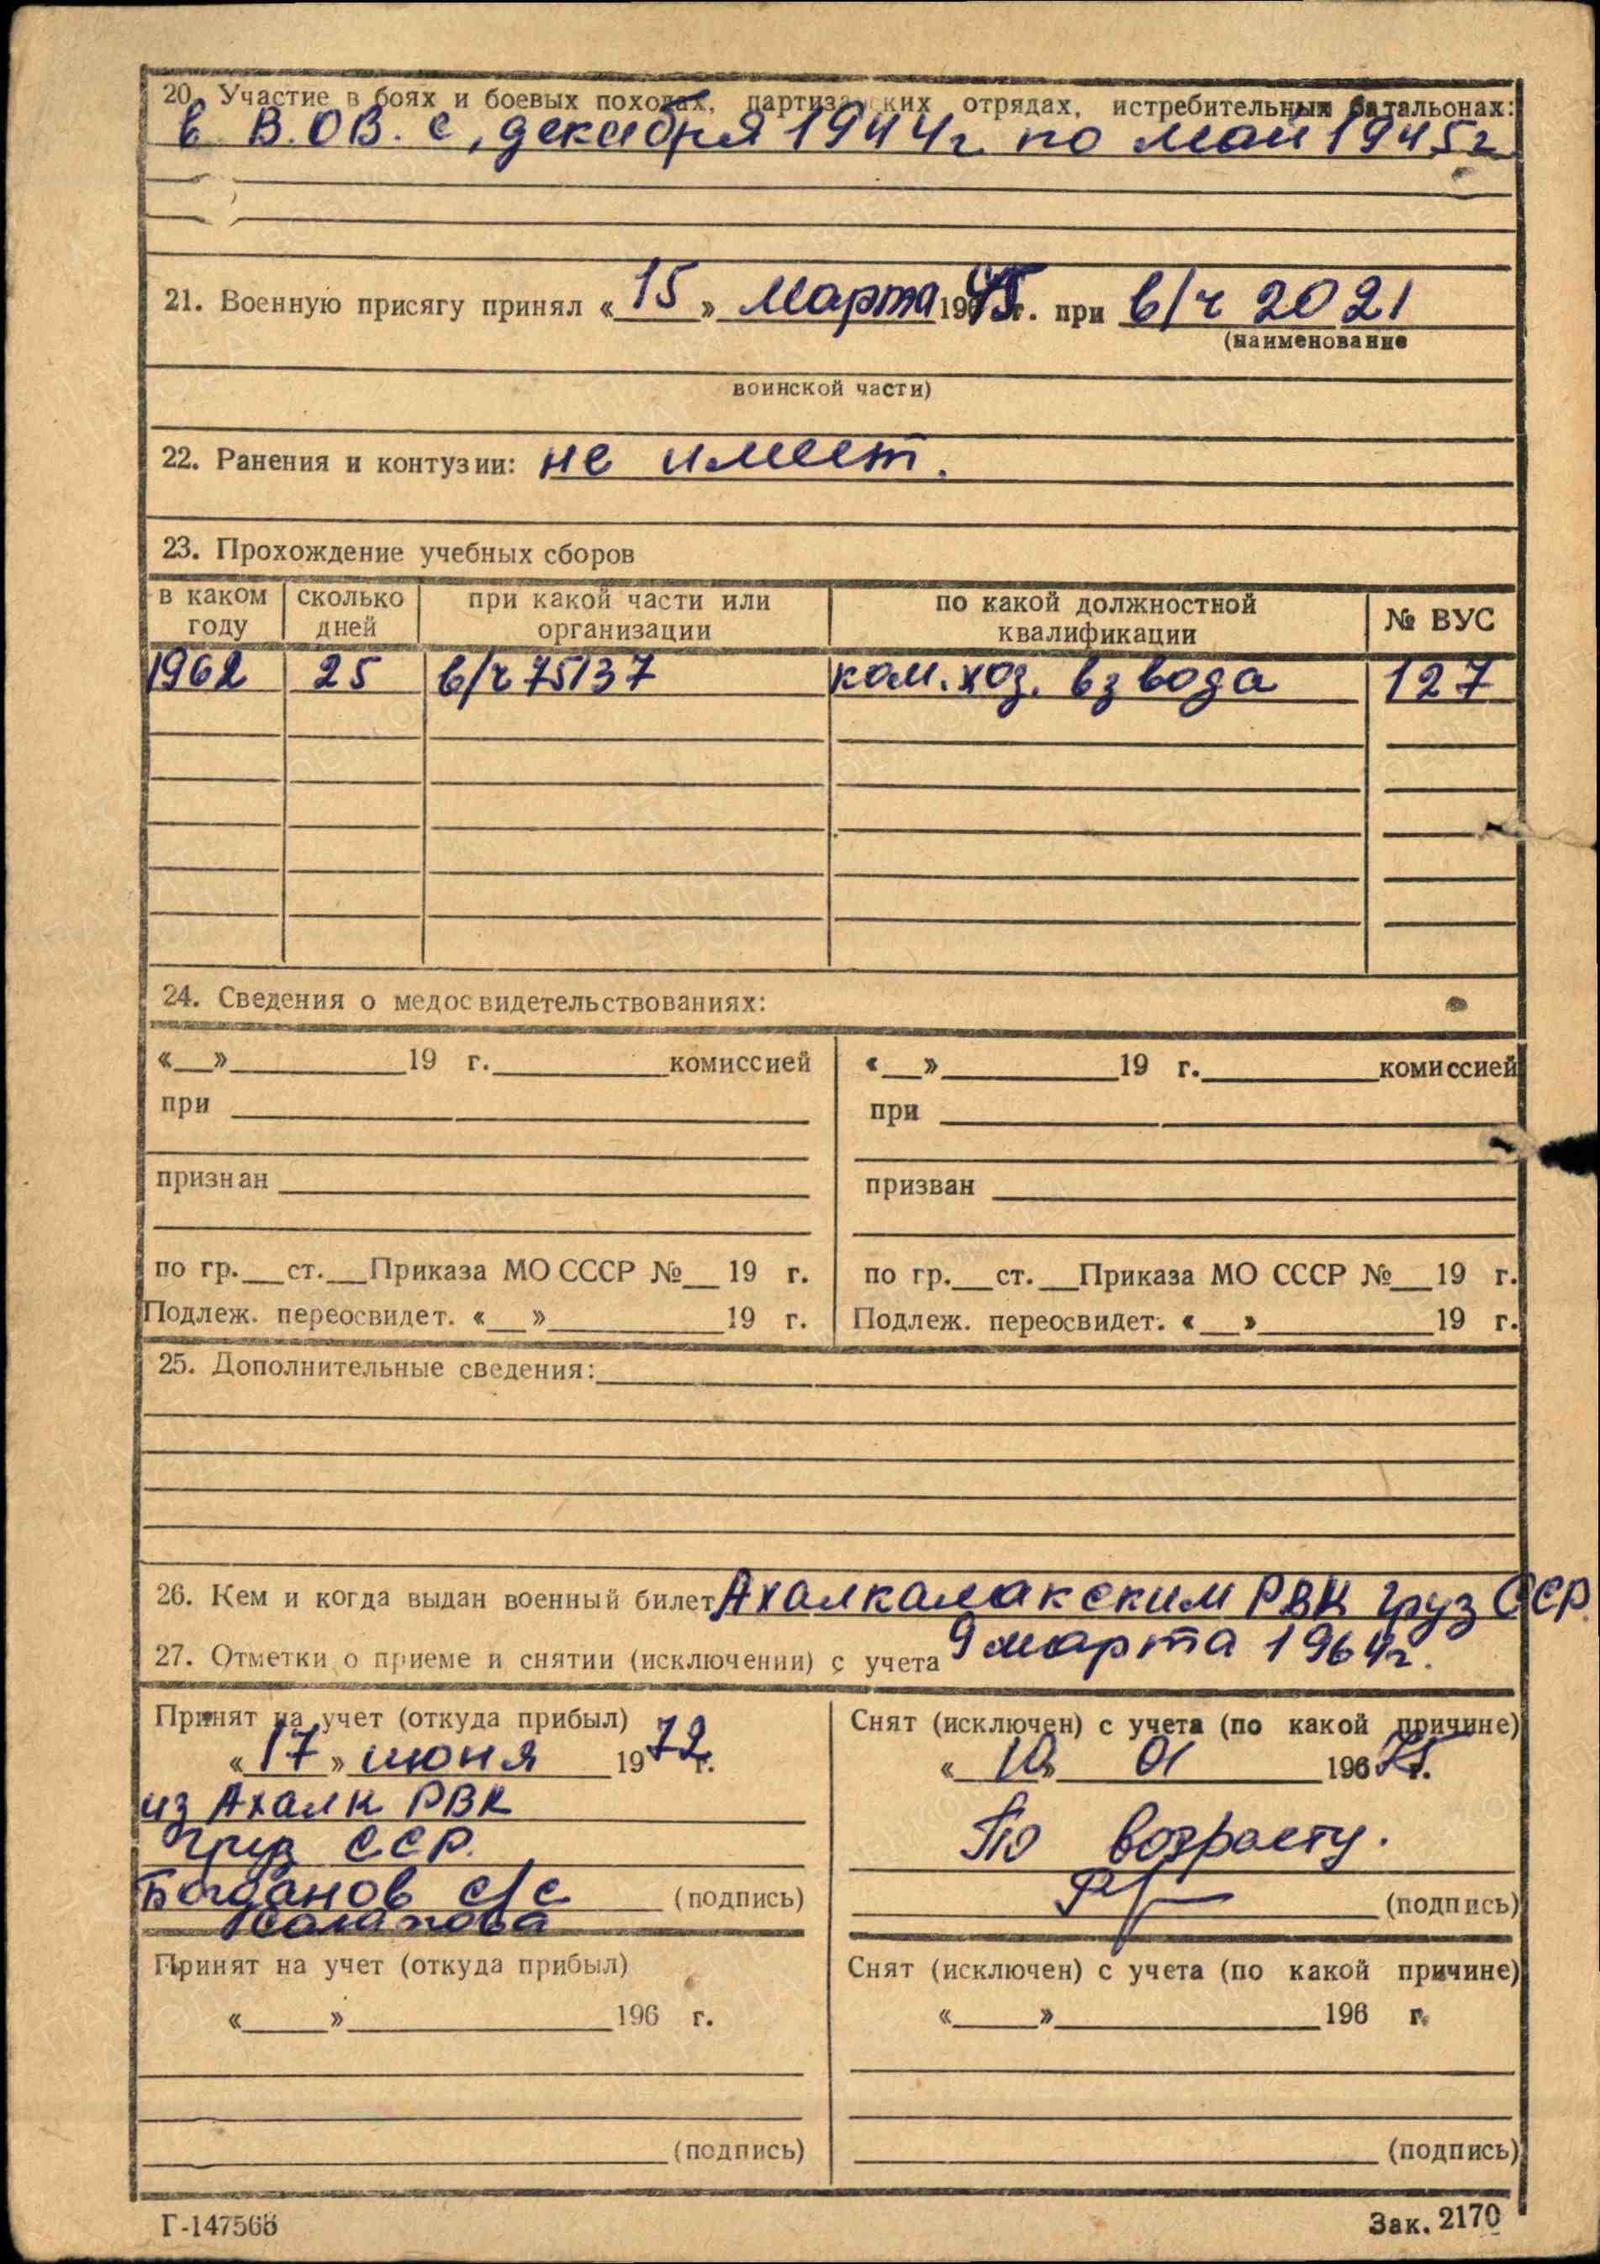 20. Участие в боях и боевых походах, партизанских отрядах, истребительных батальонах:
в В.О.В. с декабря 1944г по май 1945г
21. Военную присягу принял « 15 » марта 1945 г. при в/ч 2021
(наименование
воинской части)
22. Ранения и контузии: не имеет.
23. Прохождение учебных сборов
в каком году сколько дней при какой части или организации по какой должностной квалификации № ВУС
1962 25 в/ч 75137 ком. хоз. взвода 127
24. Сведения о медосвидетельствованиях:
«__»________19 г.________комиссией «__»________19 г.________комиссией
при при
признан призван
по гр.__ст.__Приказа МО СССР №__19 г. по гр.__ст.__Приказа МО СССР №__19 г.
Подлеж. переосвидет. «__»________19 г. Подлеж. переосвидет. «__»________19 г.
25. Дополнительные сведения:
26. Кем и когда выдан военный билет Ахалкалакским РВК Груз ССР.
9 марта 1964г.
27. Отметки о приеме и снятии (исключении) с учета
Принят на учет (откуда прибыл) Снят (исключен) с учета (по какой причине)
«17» июня 1972г. «10» 01 19675г.
из Ахалк РВК
Груз ССР. По возрасту.
Богданов с/с (подпись) (подпись)
Принят на учет (откуда прибыл) Снят (исключен) с учета (по какой причине)
«____»________196 г. «____»________196 г.
(подпись) (подпись)
Г-147568 Зак. 2170